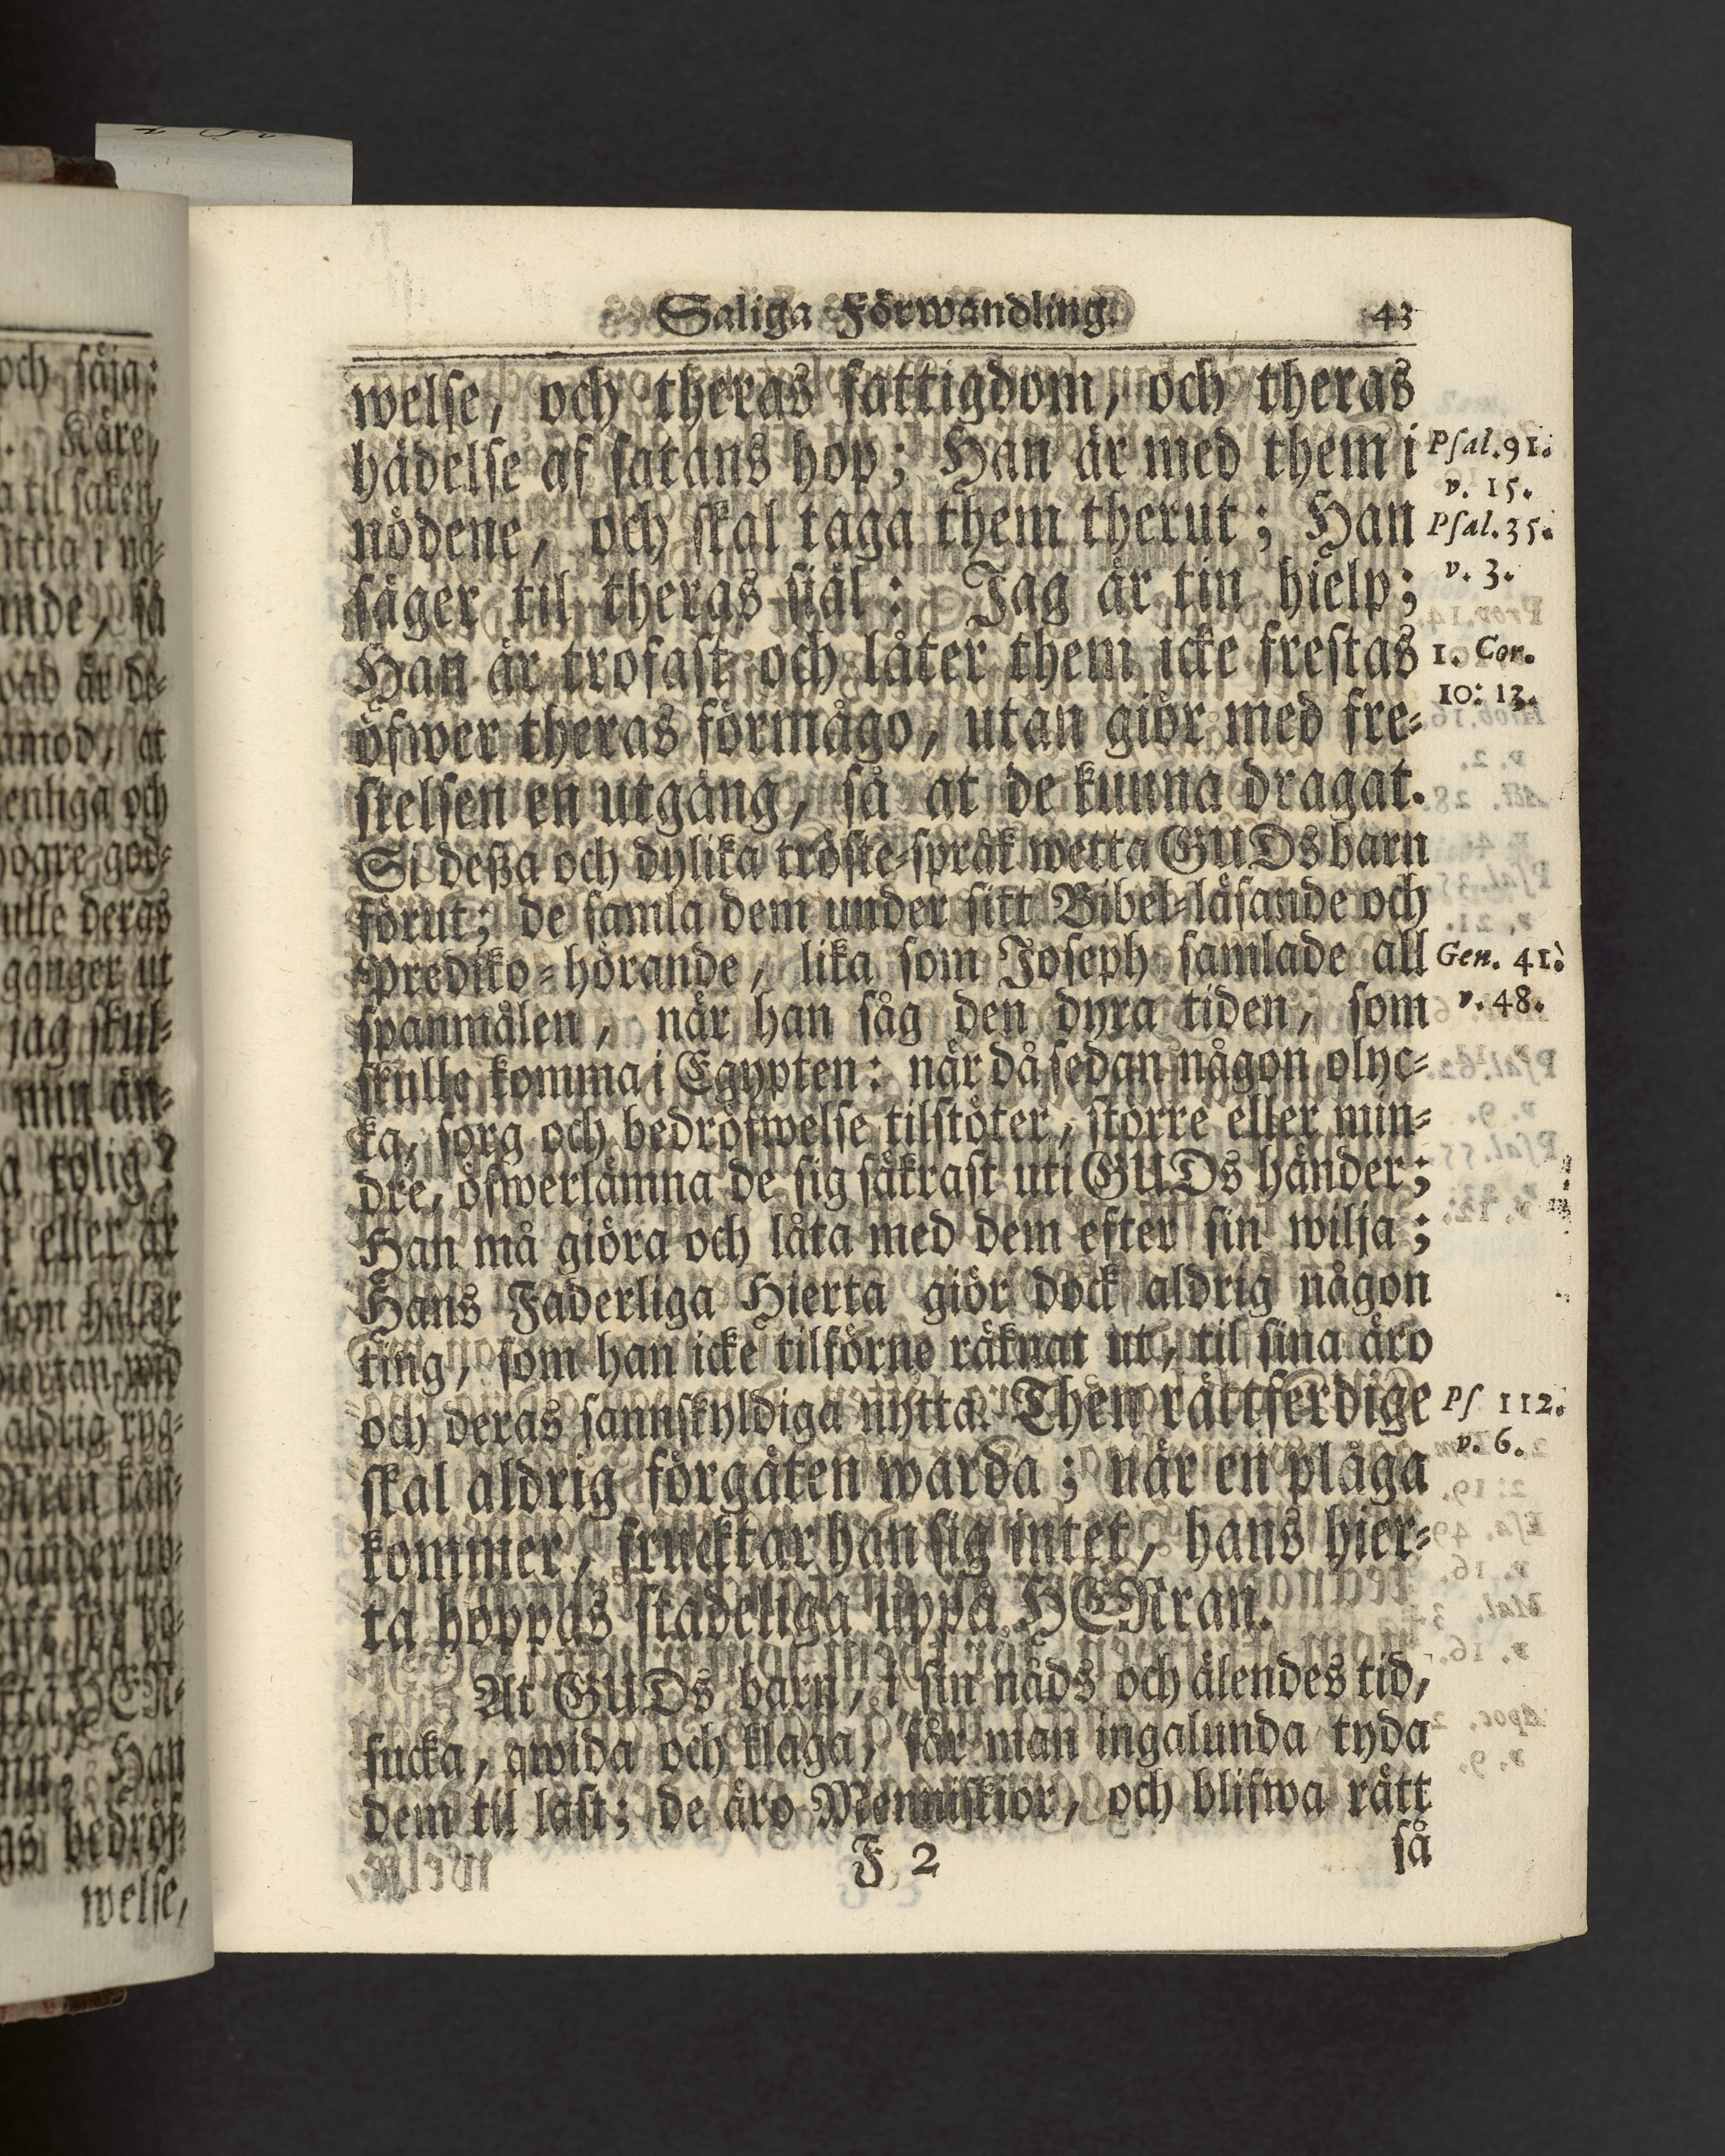 Saliga Förwandling. 43
welse, och theras fattigdom, och theras
hädelse af satans hop; Han är med them i
Psal. 91.
v. 15.
nödene, och skal taga them therut; Han
Psal. 35.
v. 3.
säger til theras siäl: Jag är tin hielp;
Han är trofast och låter them icke frestas
1. Cor.
10: 13.
öfwer theras förmågo, utan giör med fre-
stelsen en utgång, så at de kunna dragat.
Si deßa och dylika tröste-språk wetta GUDs barn
förut; de samla dem under sitt Bibel-läsande och
Prediko-hörande, lika som Joseph samlade all
Gen. 41.
v. 48.
spanmålen, när han såg den dyra tiden, som
skulle komma i Egypten: när då sedan någon olyc-
ka, sorg och bedröfwelse tilstöter, större eller min-
dre, öfwerlämna de sig säkrast uti GUDs händer;
Han må giöra och låta med dem efter sin wilja;
Hans Faderliga Hierta giör dock aldrig någon
ting, som han icke tilförne räknat ut, til sina äro
och deras sannskyldiga nytta. Then rättferdige
Ps 112.
v. 6.
skal aldrig förgäten warda; när en plåga
kommer, frucktar han sig intet, hans hier-
ta hoppas stadeliga uppå HERran.
At GUDs barn, i sin nåds och älendes tid,
sucka, qwida och klaga, får man ingalunda tyda
dem til last; de äro Menniskior, och blifwa rätt
F 2 så
och säja:
Käre,
a til saken,
jag skul-
min än-
a rolig?
eller är
som håller
aldrig ryg-
händer up-
Han
bedröf-
welse,